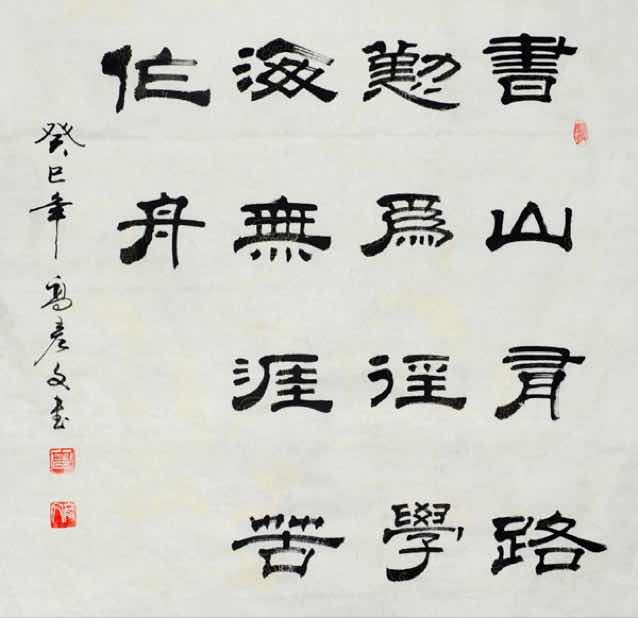 書山有路
勤為徑學
海無涯苦
作舟
癸巳年高彦文書